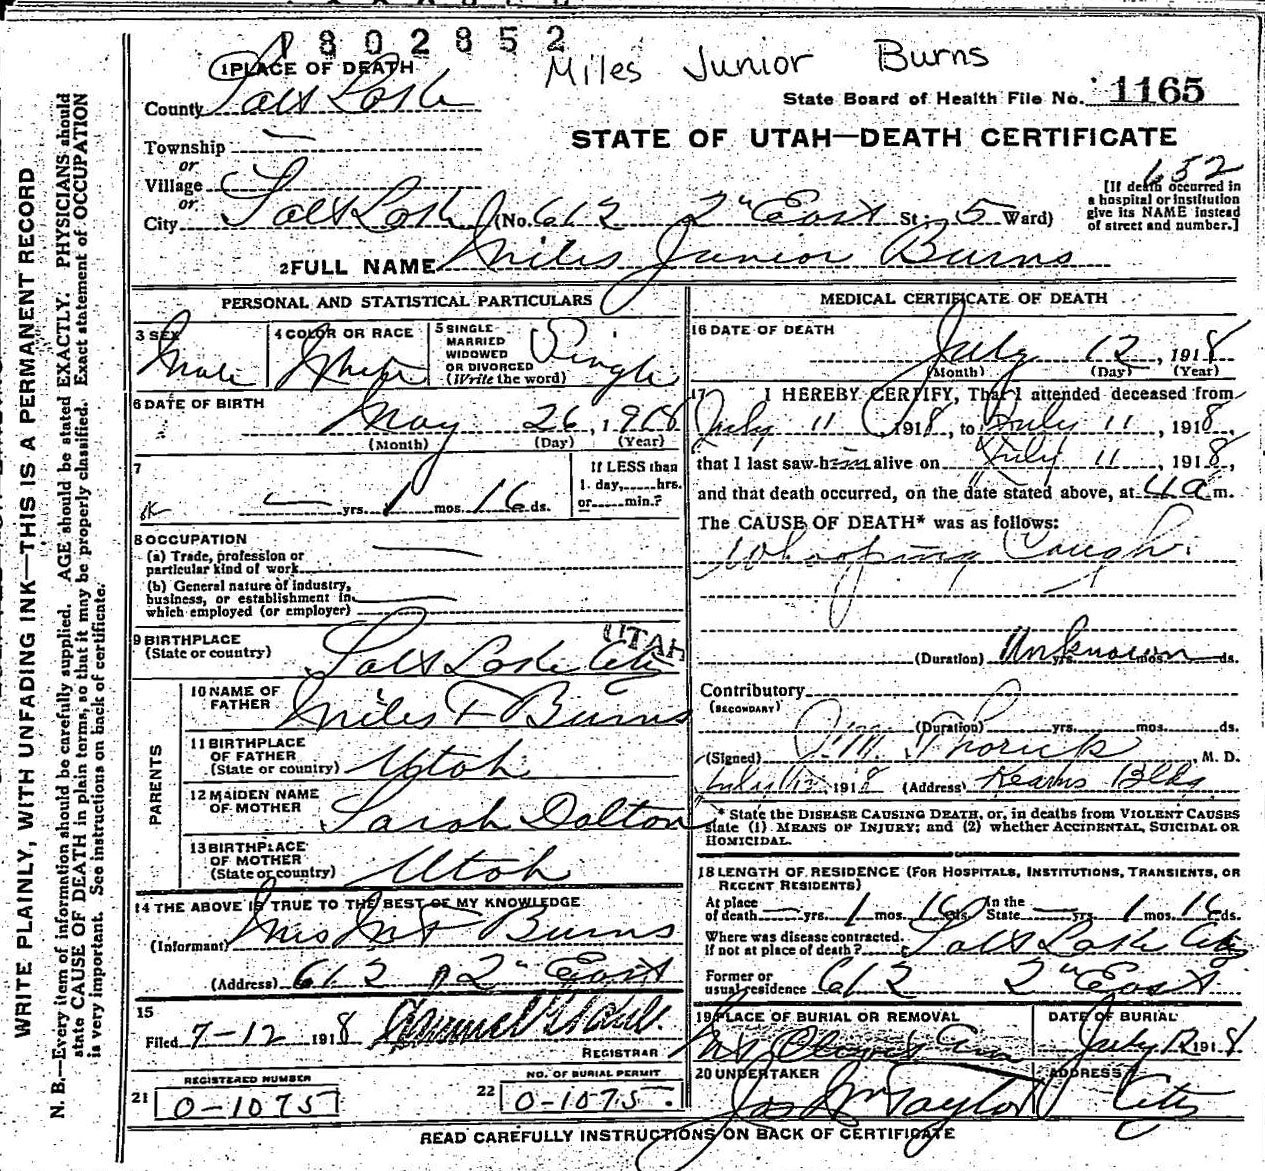 1802852
Miles Junior Burns
1 PLACE OF DEATH
County Salt Lake
State Board of Health File No. 1165
Township
or
Village
or
City Salt Lake (No. 612 2" East St; 5 Ward)
STATE OF UTAH—DEATH CERTIFICATE
652
[If death occurred in
a hospital or institution
give its NAME instead
of street and number.]
2 FULL NAME Miles Junior Burns
PERSONAL AND STATISTICAL PARTICULARS
3 SEX
Male
4 COLOR OR RACE
White
5 SINGLE
MARRIED
WIDOWED
OR DIVORCED
(Write the word)
Single
6 DATE OF BIRTH
May 26, 1918
(Month) (Day) (Year)
7
— yrs. 1 mos. 16 ds.
If LESS than
1 day, hrs.
or min.?
8 OCCUPATION
(a) Trade, profession or
particular kind of work
(b) General nature of industry,
business, or establishment in
which employed (or employer)
9 BIRTHPLACE
(State or country) Salt Lake City
UTAH
PARENTS
10 NAME OF
FATHER Miles F Burns
11 BIRTHPLACE
OF FATHER
(State or country) Utah
12 MAIDEN NAME
OF MOTHER Sarah Dalton
13 BIRTHPLACE
OF MOTHER
(State or country) Utah
14 THE ABOVE IS TRUE TO THE BEST OF MY KNOWLEDGE
(Informant) Mrs M F Burns
(Address) 612 2" East
15
Filed 7-12 1918
REGISTRAR
REGISTERED NUMBER
21 0-1075
NO. OF BURIAL PERMIT
22 0-1075
MEDICAL CERTIFICATE OF DEATH
16 DATE OF DEATH
July 12, 1918
(Month) (Day) (Year)
17 I HEREBY CERTIFY, That I attended deceased from
July 11 1918, to July 11, 1918,
that I last saw him alive on July 11, 1918,
and that death occurred, on the date stated above, at 4 a m.
The CAUSE OF DEATH* was as follows:
Whooping Cough
(Duration) Unknown yrs. mos. ds.
Contributory
(SECONDARY)
(Duration) yrs. mos. ds.
(Signed) , M. D.
July 12 1918 (Address) Kearns Bldg
* State the DISEASE CAUSING DEATH, or, in deaths from VIOLENT CAUSES
state (1) MEANS OF INJURY; and (2) whether ACCIDENTAL, SUICIDAL OR
HOMICIDAL.
18 LENGTH OF RESIDENCE (FOR HOSPITALS, INSTITUTIONS, TRANSIENTS, OR
RECENT RESIDENTS)
At place
of death — yrs. 1 mos. 16 ds. In the State — yrs. 1 mos. 16 ds.
Where was disease contracted,
if not at place of death? Salt Lake City
Former or
usual residence 612 2" East
19 PLACE OF BURIAL OR REMOVAL
Mt Olivet Cem
DATE OF BURIAL
July 12 1918
20 UNDERTAKER
Jos Wm Taylor
ADDRESS
City
READ CAREFULLY INSTRUCTIONS ON BACK OF CERTIFICATE
WRITE PLAINLY, WITH UNFADING INK—THIS IS A PERMANENT RECORD
N. B.—Every item of information should be carefully supplied. AGE should be stated EXACTLY. PHYSICIANS should
state CAUSE OF DEATH in plain terms, so that it may be properly classified. Exact statement of OCCUPATION
is very important. See instructions on back of certificate.